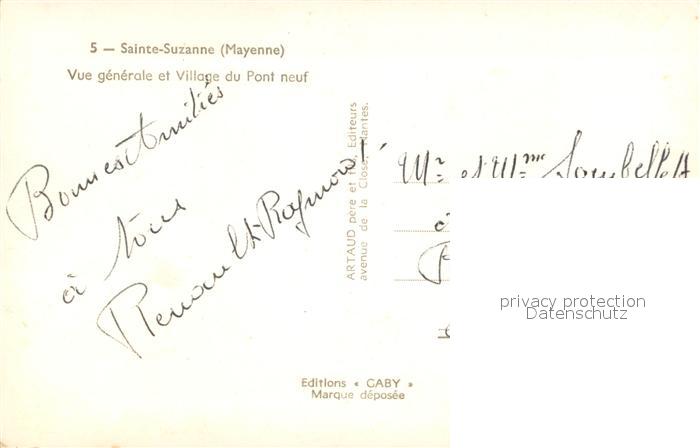 5 — Sainte-Suzanne (Mayenne)
Vue générale et Village du Pont neuf
Bonnes Amitiés
à tous
Renault Raymond
ARTAUD père et fils, Editeurs
avenue de la Close, Nantes.
Mr et Mme
à
privacy protection
Datenschutz
Editions « GABY »
Marque déposée